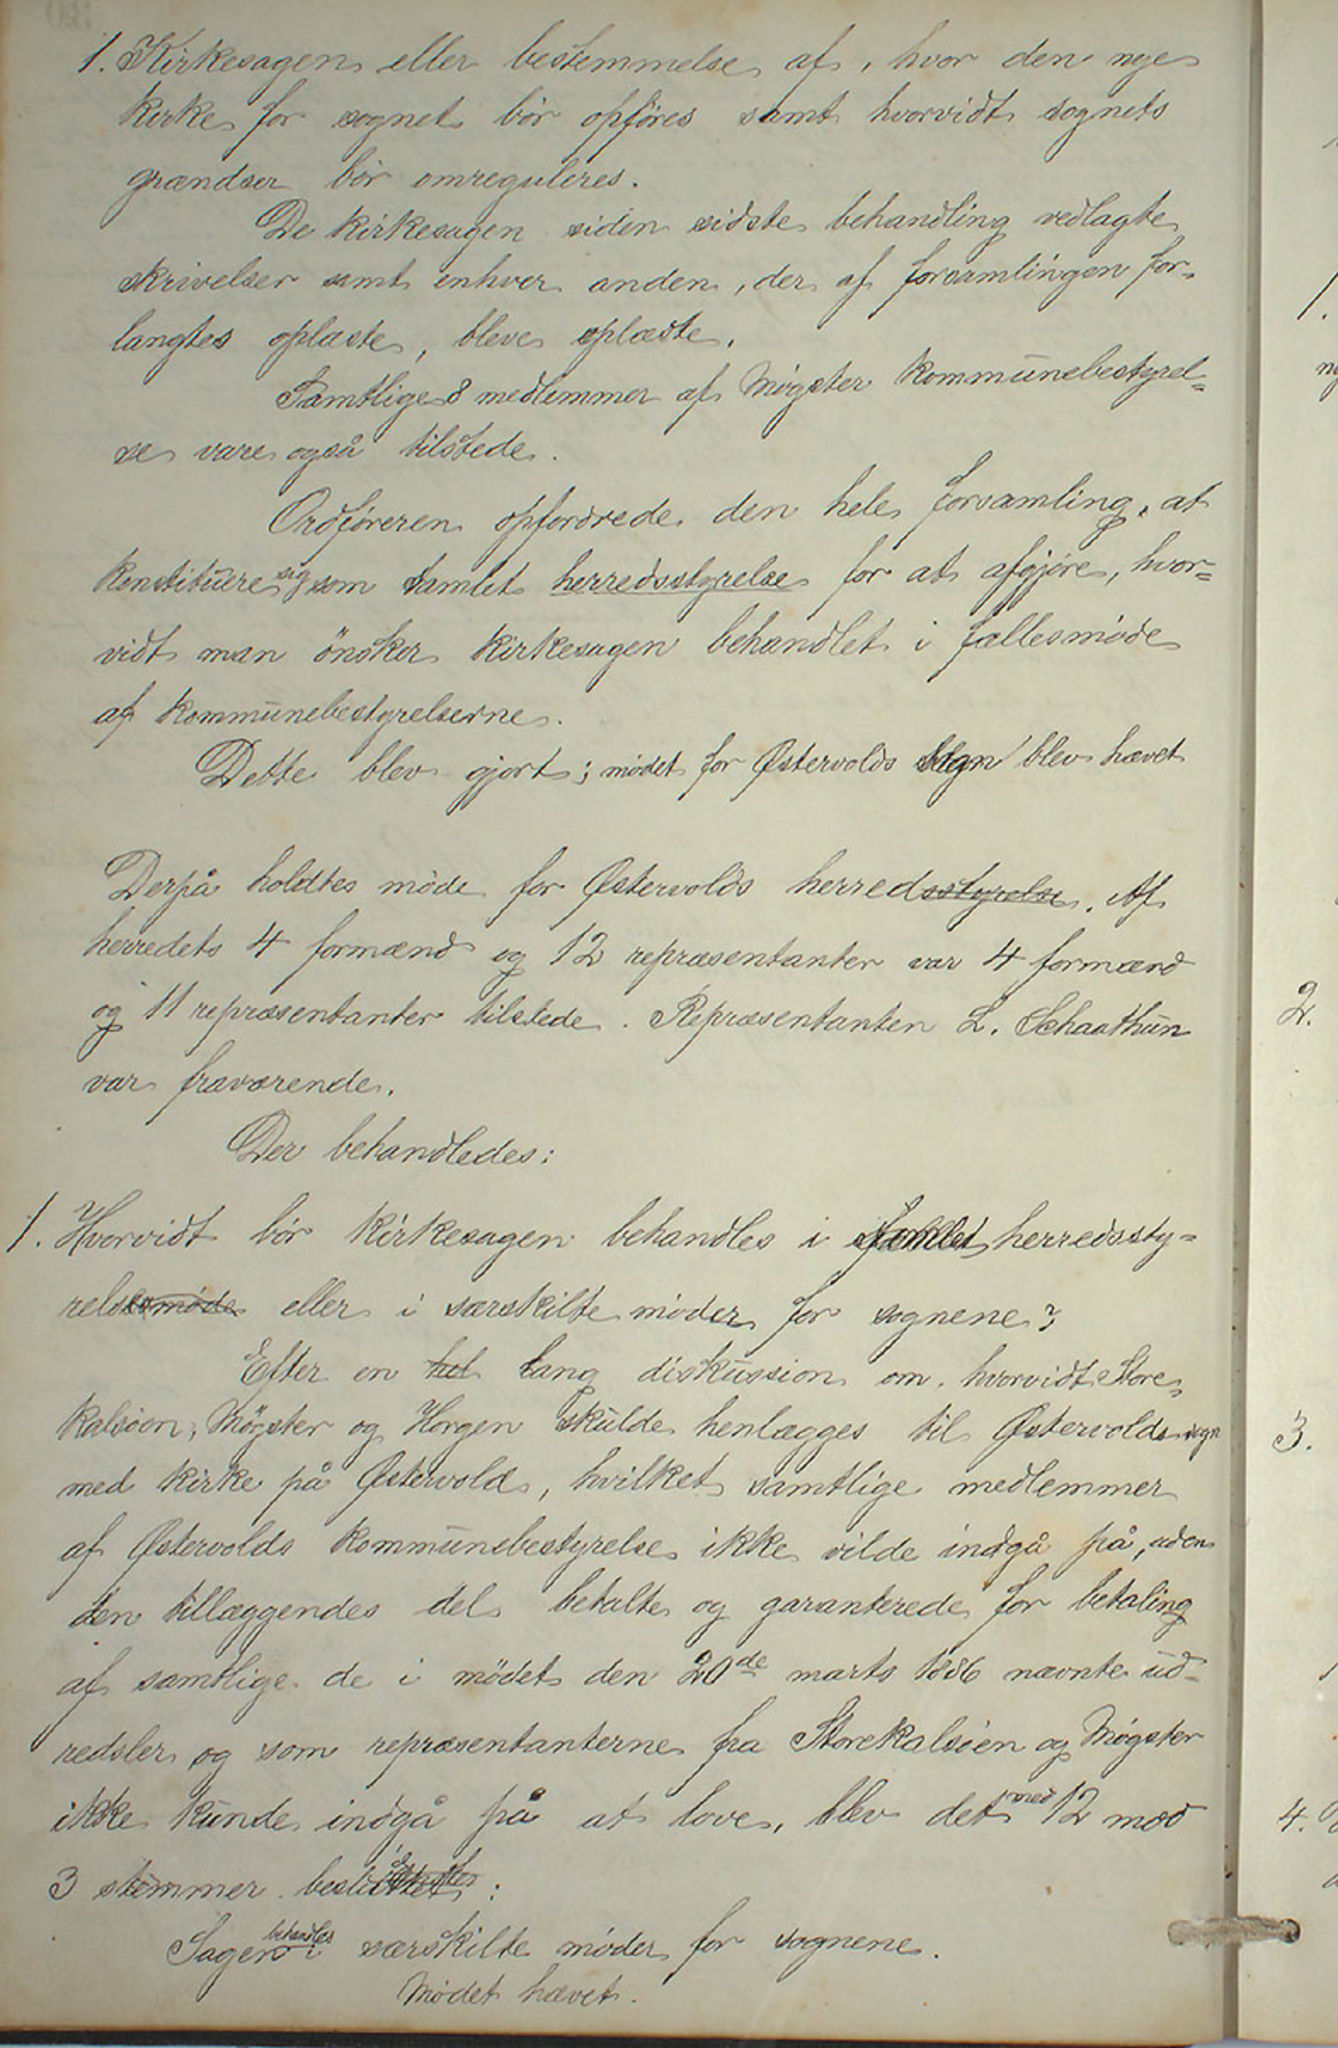 1. Kirkesagen eller bestemmelse af, hvor den nye
kirke for sognet bör opföres samt hvorvidt sognets
grændser bör omreguleres.
De kirkesagen siden sidste behandling vedlagte
skrivelser samt enhver anden, der af forsamlingen for-
langtes oplæste, bleve oplæste.
Samtlige 8 medlemmer af Møgster kommunebestyrel-
se vare også tilstede.
Ordføreren opfordrede den hele forsamling, at
konstituere sig som samlet herredsstyrelse for at afgjøre, hvor-
vidt man önsker kirkesagen behandlet i fællesmöde
af kommunebestyrelserne.
Dette blev gjort; mödet for Østervolds sogn blev hævet
Derpå holdtes möde for Østervolds herredsstyrelse. Af
herredets 4 formænd og 12 repræsentanter var 4 formænd
og 11 repræsentanter tilstede. Repræsentanten L. Schaathun
var fraværende.
Der behandledes:
1. Hvorvidt bör kirkesagen behandles i samlet herredssty-
relsesmöde eller i særskilte möder for sognene?
Efter en hel lang diskussion om, hvorvidt Store-
kalsöen, Møgster og Horgen skulde henlægges til Østervolds sogn
med kirke på Østervold, hvilket samtlige medlemmer
af Østervolds kommunebestyrelse ikke vilde indgå på, uden
den tillæggendes del betalte og garanterede for betaling
af samtlige de i mödet den 20de marts 1886 nævnte ud-
redsler og som repræsentanterne fra Storekalsöen og Møgster
ikke kunde indgå på at love, blev det med 12 mod
3 stemmer besluttet:
Sagen behandles i særskilte möder for sognene.
Mödet hævet.
1.
2.
3.
4.